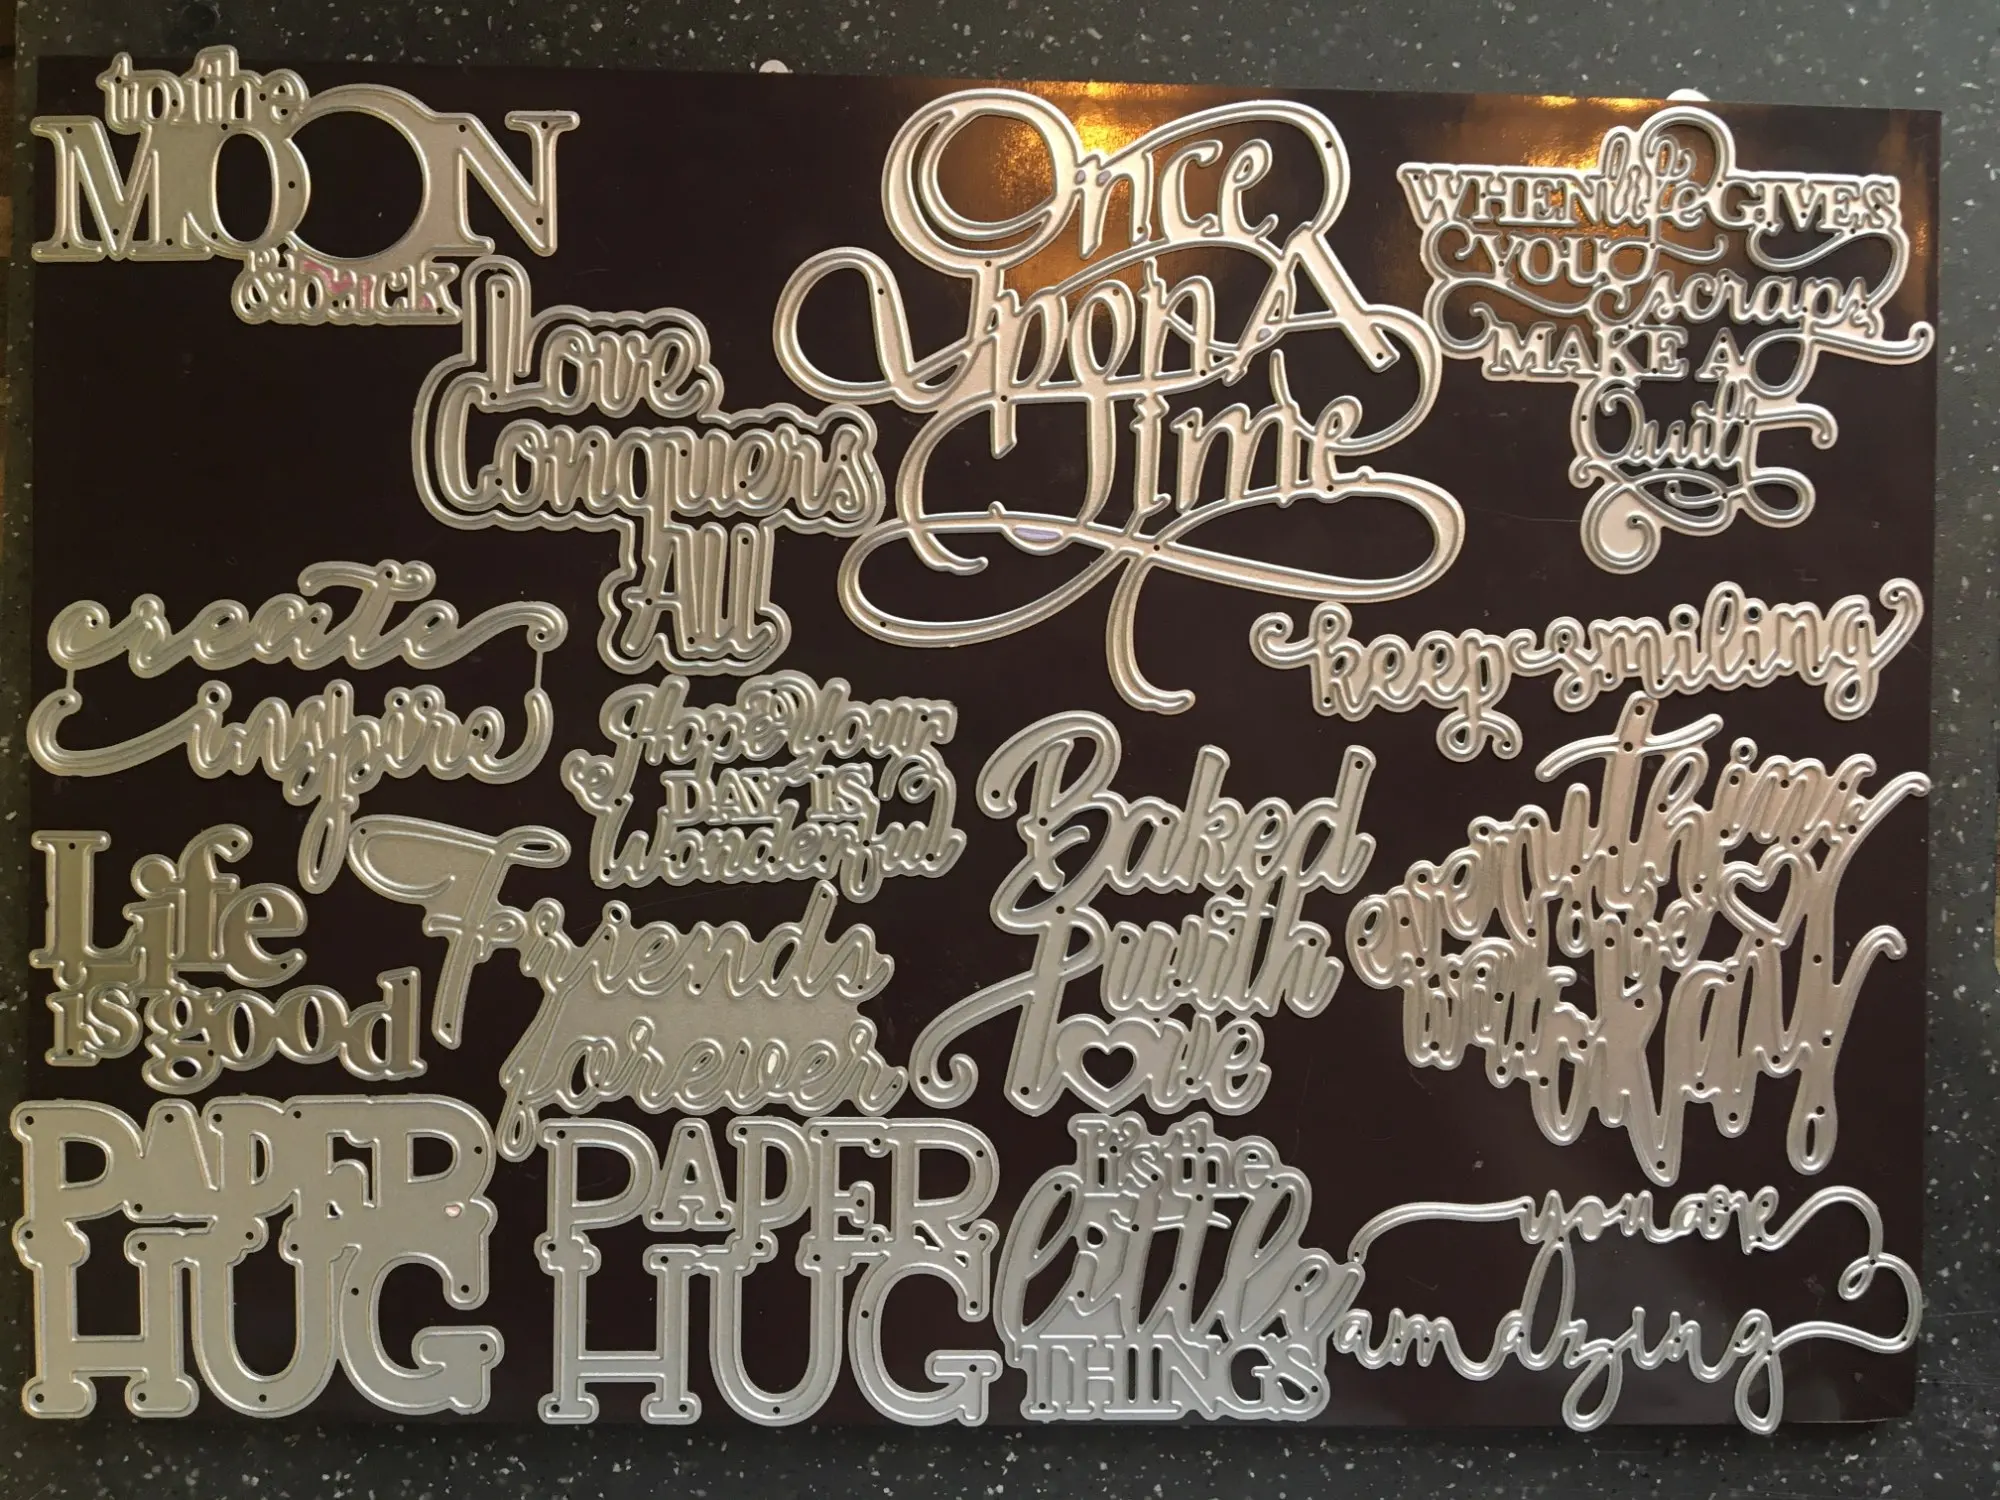 to the
MOON
& back
Once
Upon A
Time
WHEN life GIVES
YOU scraps
MAKE A
Quilt
Love
Conquers
All
create
inspire
keep smiling
Hope Your
DAY IS
Wonderful
Baked
with
love
everything
is
will be
okay
Life
is good
Friends
forever
PAPER
HUG
PAPER
HUG
It's the
little
THINGS
you are
amazing